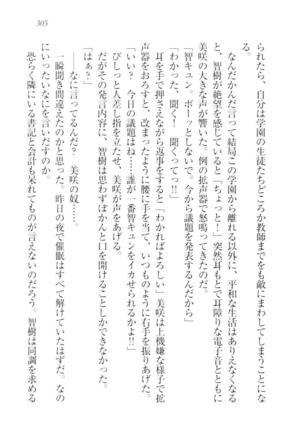 305
られたら、自分は学園の生徒たちどころか教師までを敵にまわしてしまうことにな
る。
なんだかんだ言って結局この学園から離れる以外に、平和な生活はありえなくなる
と、智樹が絶望を感じていると「ちょっと！」突然耳もとで耳障りな電子音とともに
美咲の大きな声が響いた。例の拡声器で怒鳴ってきたのだ。
「智キュン。ボーッとしないで。今から議題を発表するんだから」
「わかった、聞く！ 聞くってっ!!」
耳を手で押さえながら返事をすると「わかればよろしい」美咲は上機嫌な様子で拡
声器をおろすと、改まったように腰に手を当て、いつものように右手を振りあげた。
「いい？ 今日の議題はね…誰が一番智キュンをイカせられるかよ!!」
びしっと人差し指を立たせ、美咲が声をあげる。
だがその発言内容に、智樹は思わずぽかんと口を開けることしかできなかった。
「はぁ？」
――なに言ってるんだ？ 美咲の奴……。
一瞬聞き間違えたのかと思った。昨日の夜で催眠はすべて解けていたはずだ。なの
にいったいなにを言いだすのか。
恐らく隣にいる書記と会計も呆れてものが言えないのだろう。智樹は同調を求める